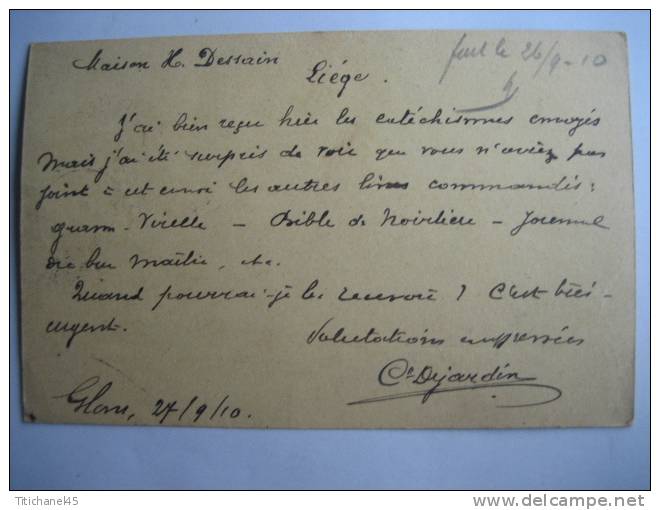 Maison H. Dessain
Liége.
fait le 26/9-10
J'ai bien reçu hier les catéchismes envoyés
Mais j'ai été surpris de voir que vous n'aviez pas
joint à cet envoi les autres livres commandés:
gramm. Virelle — Bible de Noirlieu — Journal
du bon Maître, etc.
Quand pourrai-je les recevoir? C'est très-
urgent.
Salutations empressées
Dejardin
Glons, 27/9/10.
Titichane45
delcampe.net